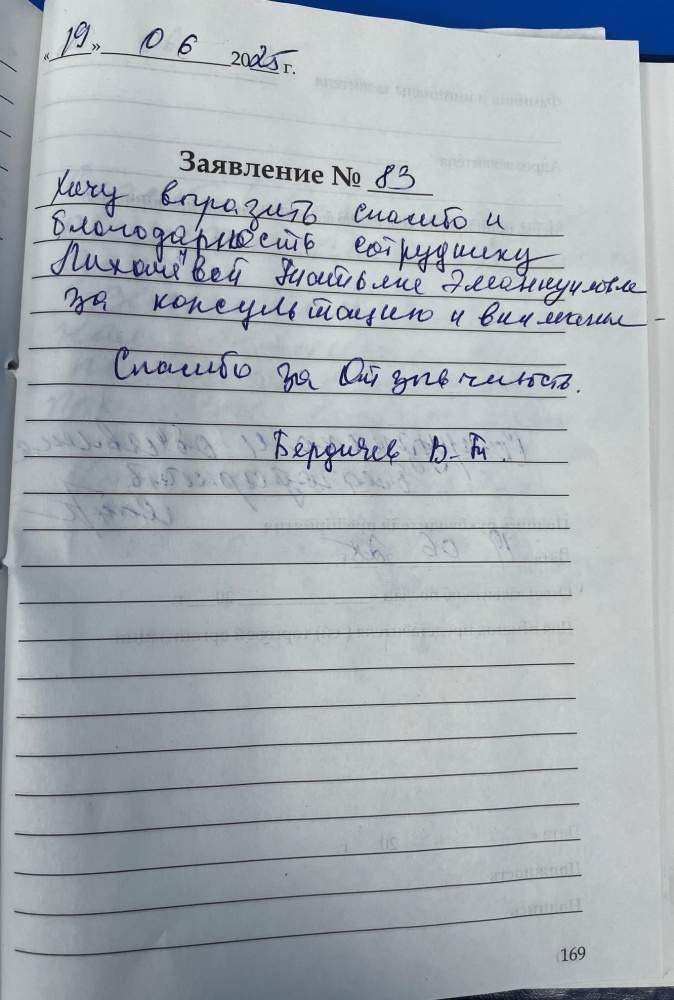 «19» 06 2025 г.
Заявление № 83
Хочу выразить спасибо и
благодарность сотруднику
Лихолёвой Татьяне Эмануиловне
за консультацию и внимание
Спасибо за Отзывчивость.
Бердичев В.Т.
169